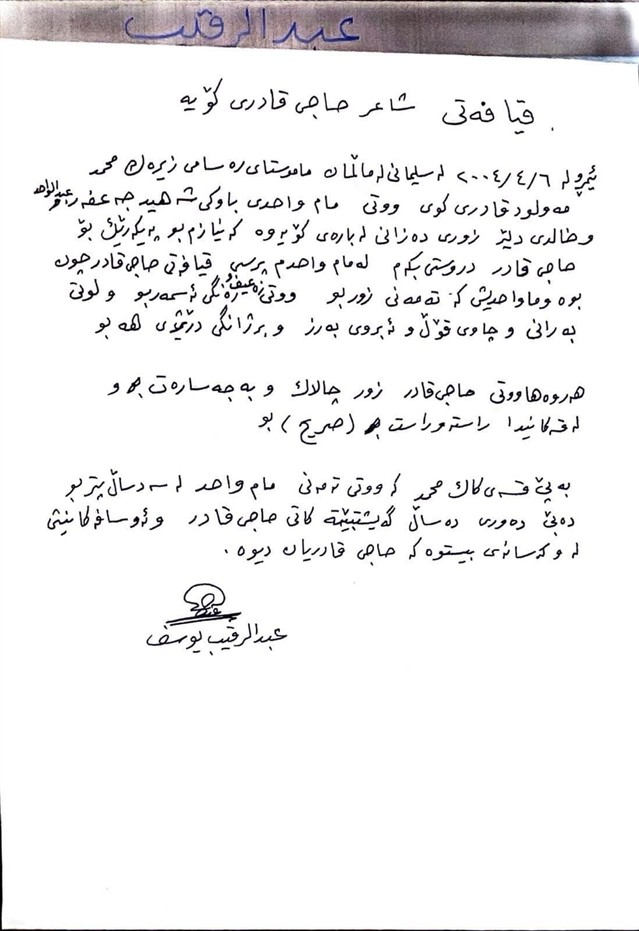 عبدالرقیب
قیافەتی شاعر حاجی قادری کۆیە
ئیمڕو لە ٢٠٠٤/٤/٦ لە سلیمانی لە ماڵمان ماموستای رەسامی زیرەك محمد
مەولود قادری کوی ووتی مام واحدی باوکی شەهید جەعفەر عبدالواحد
و خالدی دلێر زوری دەزانی لەبارەی کۆیەوە کە نیازم بو پەیکەرێك بۆ
حاجی قادر دروستی بکەم لە مام واحدم پرسی قیافەتی حاجی قادر چون
بوە وماواحدیش کە تەمەنی زور بو ووتی زەعیف و رەنگی ئەسمەر بو و لوتی
بەرانی و چاوی قوڵ و ئەبروی بەرز و برژانگی درێژی هە بو
هەروەها ووتی حاجی قادر زور چالاك و بە جەسارەت بو و
لە قسەکانیدا راستەوراست بو (صریح) بو
بە پێ قسەی کاك محمد کە ووتی تەمەنی مام واحد لە سەد ساڵ پتر بو
دەبێ دەوری دە ساڵ گەیشتبێتە کاتی حاجی قادر وئەوسافەکانیشی
لە و کەسانەی بیستوە کە حاجی قادریان دیوە .
عبدالرقیب یوسف